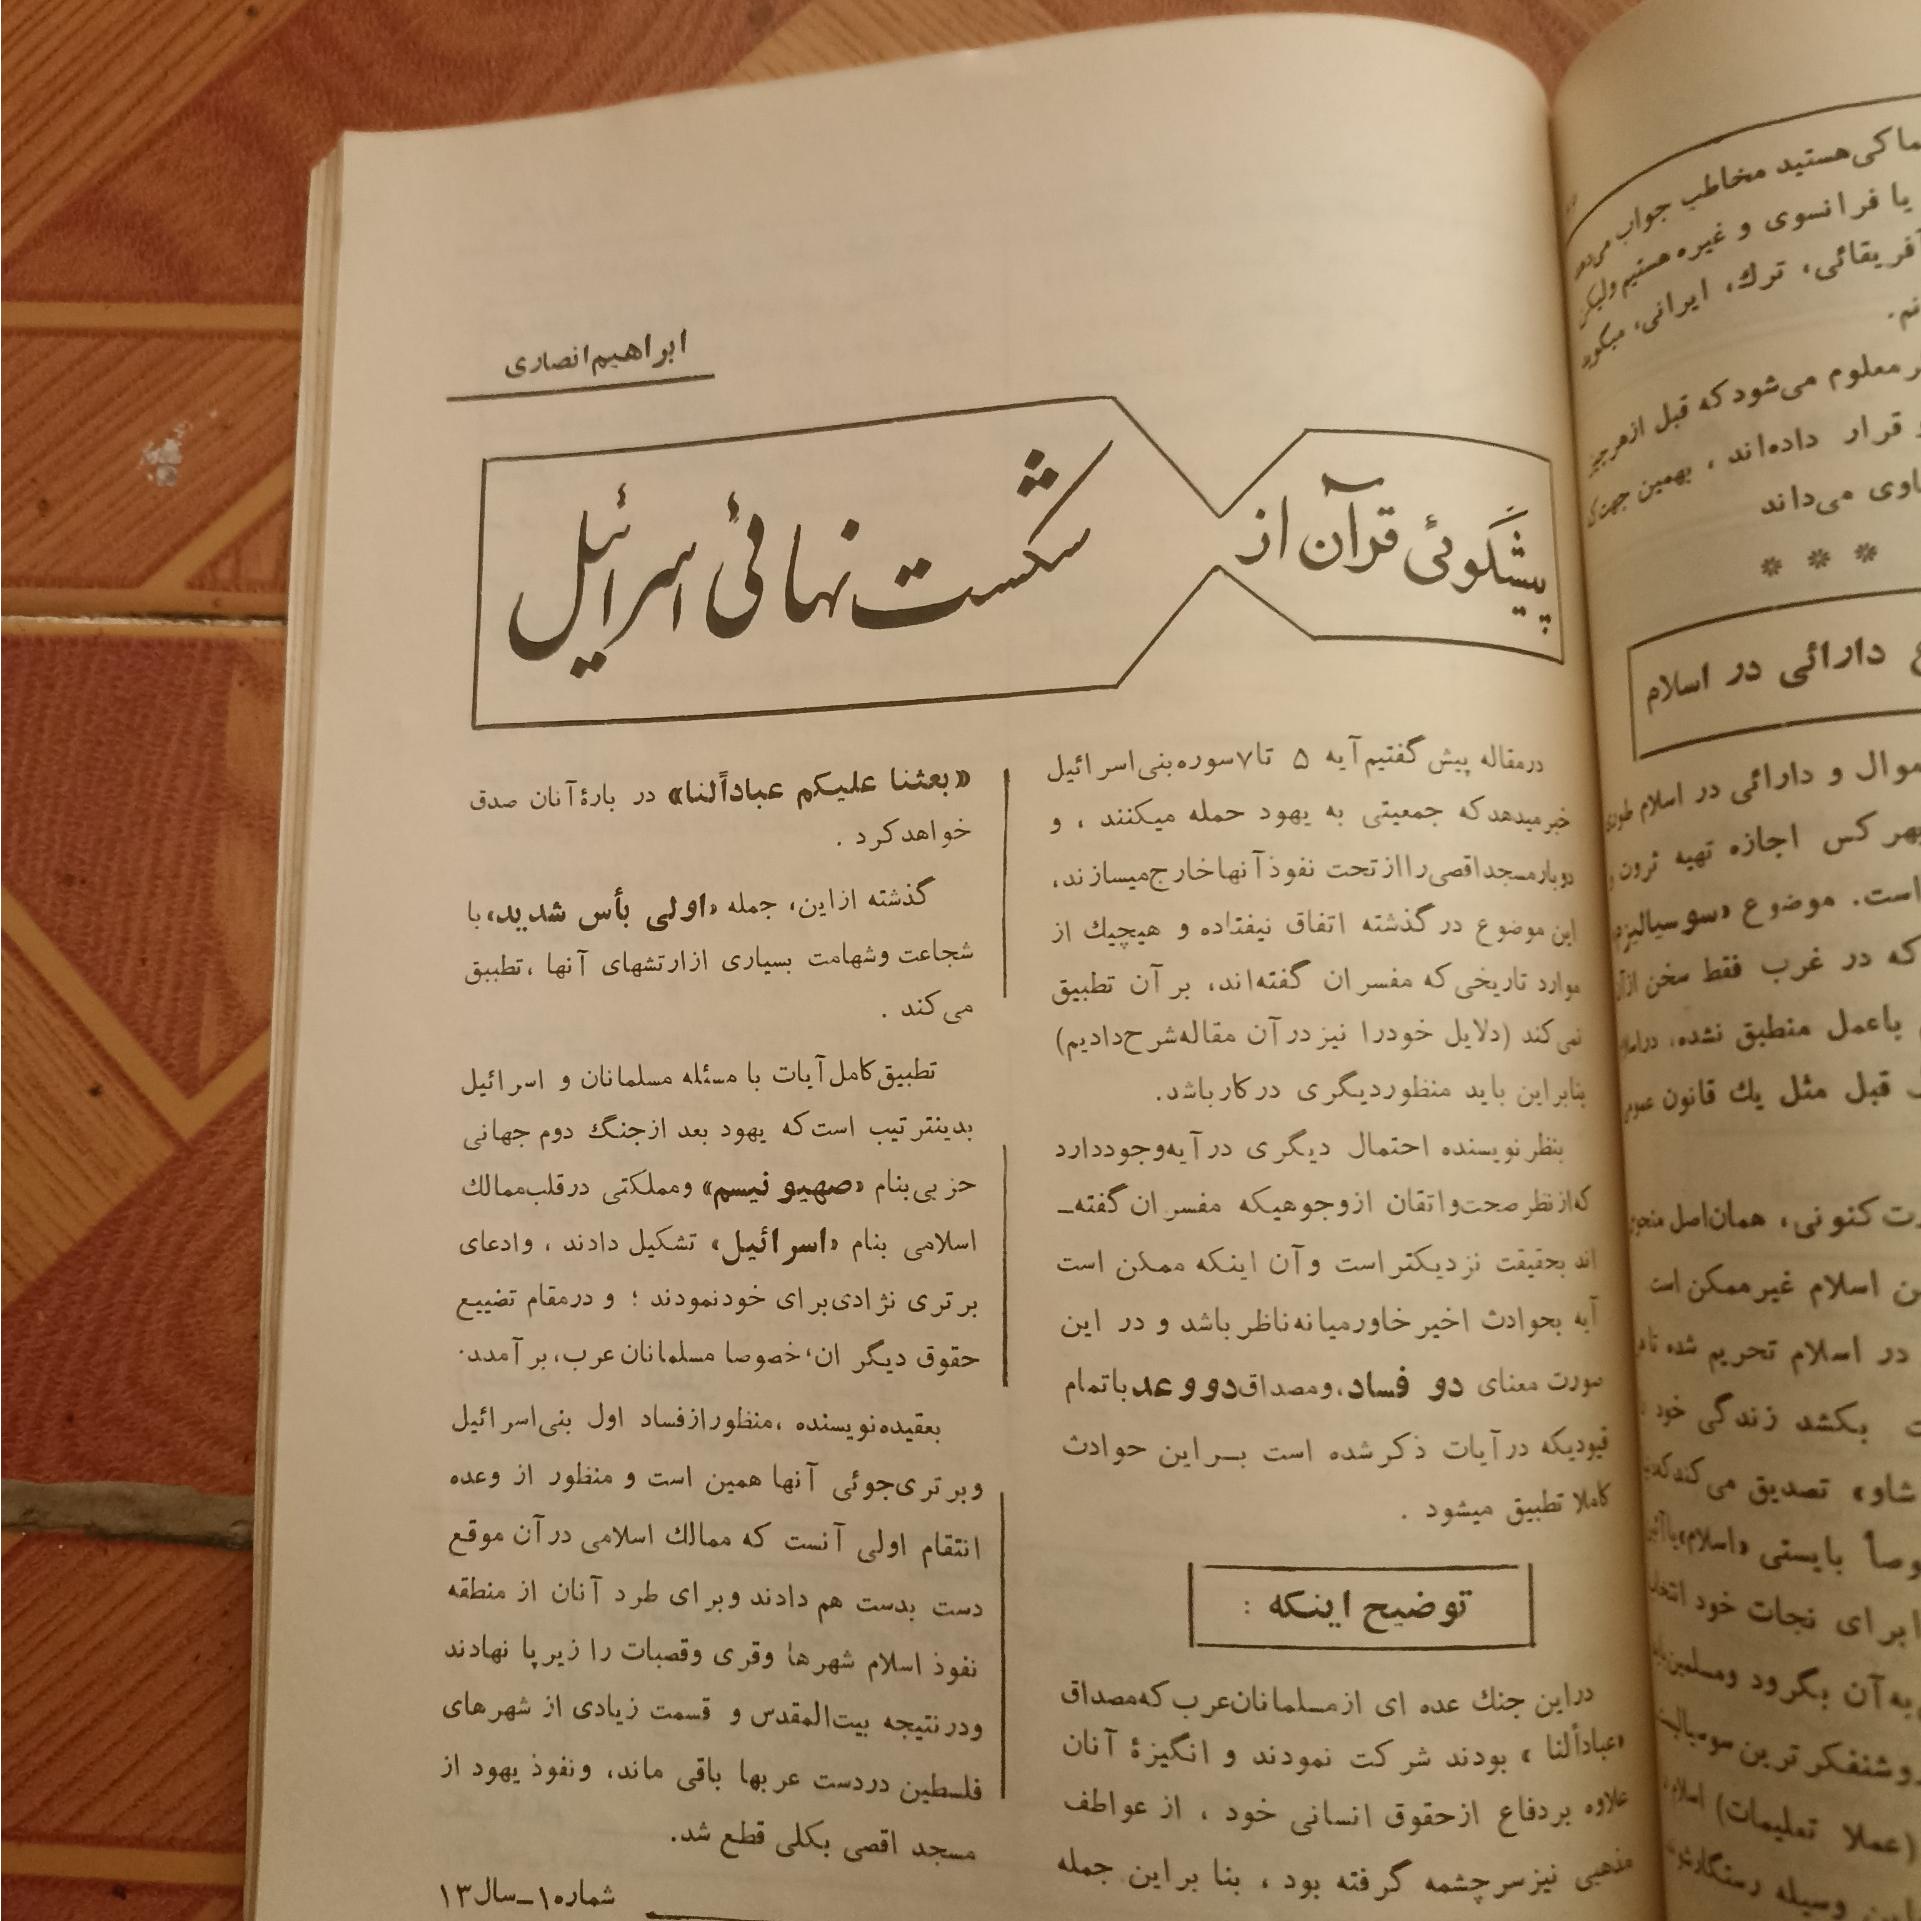 ابراهیم انصاری
پیشگوئی قرآن از
شکست نهائی اسرائیل
درمقاله پیش گفتیم آیه ۵ تا۷ سوره بنی اسرائیل
خبر میدهدکه جمعیتی به یهود حمله میکنند ، و
دوبار مسجد اقصی را از تحت نفوذ آنها خارج میسازند،
این موضوع در گذشته اتفاق نیفتاده و هیچیك از
موارد تاریخی که مفسران گفته‌اند، بر آن تطبیق
نمی کند (دلایل خودرا نیز در آن مقاله شرح دادیم)
بنابر این باید منظور دیگری در کار باشد.
بنظر نویسنده احتمال دیگری در آیه وجود دارد
که از نظر صحت و اتقان از وجوهیکه مفسران گفته‌ـ
اند بحقیقت نزدیکتر است و آن اینکه ممکن است
آیه بحوادث اخیر خاورمیانه ناظر باشد و در این
صورت معنای دو فساد، و مصداق دو وعد با تمام
قیودیکه در آیات ذکر شده است بـر این حوادث
کاملا تطبیق میشود .
توضیح اینکه :
در این جنك عده ای از مسلمانان عرب که مصداق
«عباداً لنا » بودند شرکت نمودند و انگیزهٔ آنان
علاوه بر دفاع از حقوق انسانی خود ، از عواطف
مذهبی نیز سرچشمه گرفته بود ، بنا بر این جمله
«بعثنا علیکم عباداً لنا» در بارهٔ آنان صدق
خواهد کرد .
گذشته از این، جمله «اولی بأس شدید» با
شجاعت وشهامت بسیاری از ارتشهای آنها ، تطبیق
می کند .
تطبیق کامل آیات با مسئله مسلمانان و اسرائیل
بدینترتیب است که یهود بعد از جنگ دوم جهانی
حزبی بنام «صهیو نیسم» و مملکتی در قلب ممالك
اسلامی بنام «اسرائیل» تشکیل دادند ، و ادعای
برتری نژادی برای خود نمودند ؛ و درمقام تضییع
حقوق دیگران، خصوصا مسلمانان عرب، بر آمدند.
بعقیده نویسنده ، منظور از فساد اول بنی اسرائیل
و برتری جوئی آنها همین است و منظور از وعده
انتقام اولی آنست که ممالك اسلامی در آن موقع
دست بدست هم دادند و برای طرد آنان از منطقه
نفوذ اسلام شهرها وقری وقصبات را زیر پا نهادند
و در نتیجه بیت‌المقدس و قسمت زیادی از شهرهای
فلسطین در دست عربها باقی ماند، و نفوذ یهود از
مسجد اقصی بکلی قطع شد.
شماره ۱ـ سال ۱۳
کی هستید مخاطب جواب می‌دهد
یا فرانسوی و غیره هستیم ولیکن
آفریقائی، ترك، ایرانی، میگوید
معلوم می‌شود که قبل از هر چیز
قرار داده‌اند ، بهمین جهت
می‌داند
* * *
دارائی در اسلام
و دارائی در اسلام
اجازه تهیه ثروت و
است. موضوع «سوسیالیزم
که در غرب فقط سخن از آن
باعمل منطبق نشده،
قبل مثل یك قانون عمومی
کنونی، همان اصل
اسلام غیر ممکن است
در اسلام تحریم شده
بکشد زندگی خود
شاو» تصدیق می کند
بایستی «اسلام»
برای نجات خود
به آن بگرود و مسلمین
روشنفکر ترین
(عملا تعلیمات) اسلام
وسیله